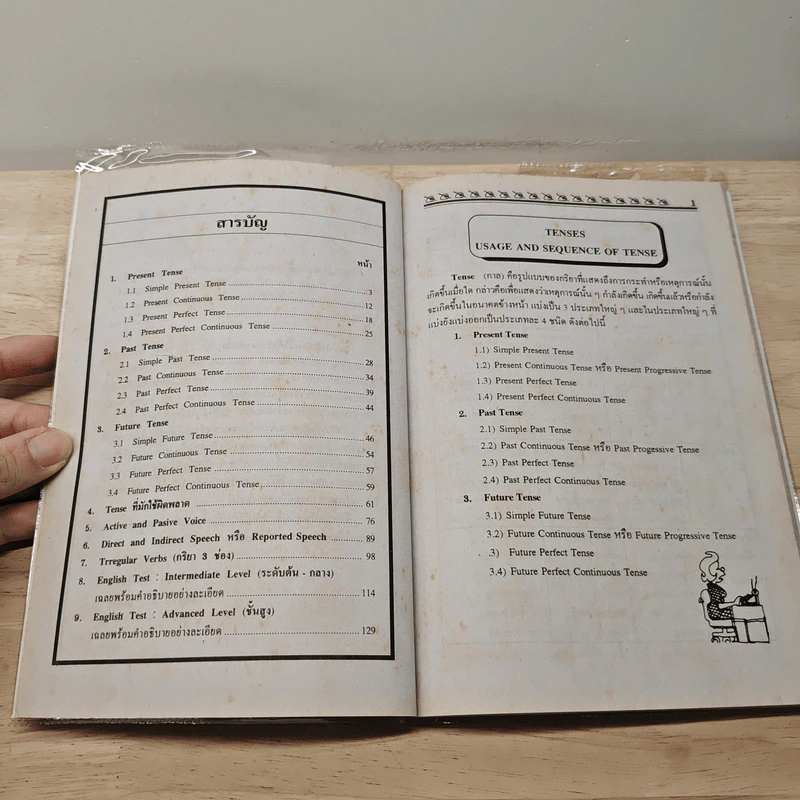 สารบัญ
หน้า
1. Present Tense
1.1 Simple Present Tense ........ 3
1.2 Present Continuous Tense ........ 12
1.3 Present Perfect Tense ........ 18
1.4 Present Perfect Continuous Tense ........ 25
2. Past Tense
2.1 Simple Past Tense ........ 28
2.2 Past Continuous Tense ........ 34
2.3 Past Perfect Tense ........ 39
2.4 Past Perfect Continuous Tense ........ 44
3. Future Tense
3.1 Simple Future Tense ........ 46
3.2 Future Continuous Tense ........ 54
3.3 Future Perfect Tense ........ 57
3.4 Future Perfect Continuous Tense ........ 59
4. Tense ที่มักใช้ผิดพลาด ........ 61
5. Active and Pasive Voice ........ 76
6. Direct and Indirect Speech หรือ Reported Speech ........ 89
7. Trregular Verbs (กริยา 3 ช่อง) ........ 98
8. English Test : Intermediate Level (ระดับต้น - กลาง)
เฉลยพร้อมคำอธิบายอย่างละเอียด ........ 114
9. English Test : Advanced Level (ชั้นสูง)
เฉลยพร้อมคำอธิบายอย่างละเอียด ........ 129
1
TENSES
USAGE AND SEQUENCE OF TENSE
Tense (กาล) คือรูปแบบของกริยาที่แสดงถึงการกระทำหรือเหตุการณ์นั้น
เกิดขึ้นเมื่อใด กล่าวคือเพื่อแสดงว่าเหตุการณ์นั้น ๆ กำลังเกิดขึ้น เกิดขึ้นแล้วหรือกำลัง
จะเกิดขึ้นในอนาคตข้างหน้า แบ่งเป็น 3 ประเภทใหญ่ ๆ และในประเภทใหญ่ ๆ ที่
แบ่งยังแบ่งออกเป็นประเภทละ 4 ชนิด ดังต่อไปนี้
1. Present Tense
1.1) Simple Present Tense
1.2) Present Continuous Tense หรือ Present Progressive Tense
1.3) Present Perfect Tense
1.4) Present Perfect Continuous Tense
2. Past Tense
2.1) Simple Past Tense
2.2) Past Continuous Tense หรือ Past Progessive Tense
2.3) Past Perfect Tense
2.4) Past Perfect Continuous Tense
3. Future Tense
3.1) Simple Future Tense
3.2) Future Continuous Tense หรือ Future Progressive Tense
.3) Future Perfect Tense
3.4) Future Perfect Continuous Tense